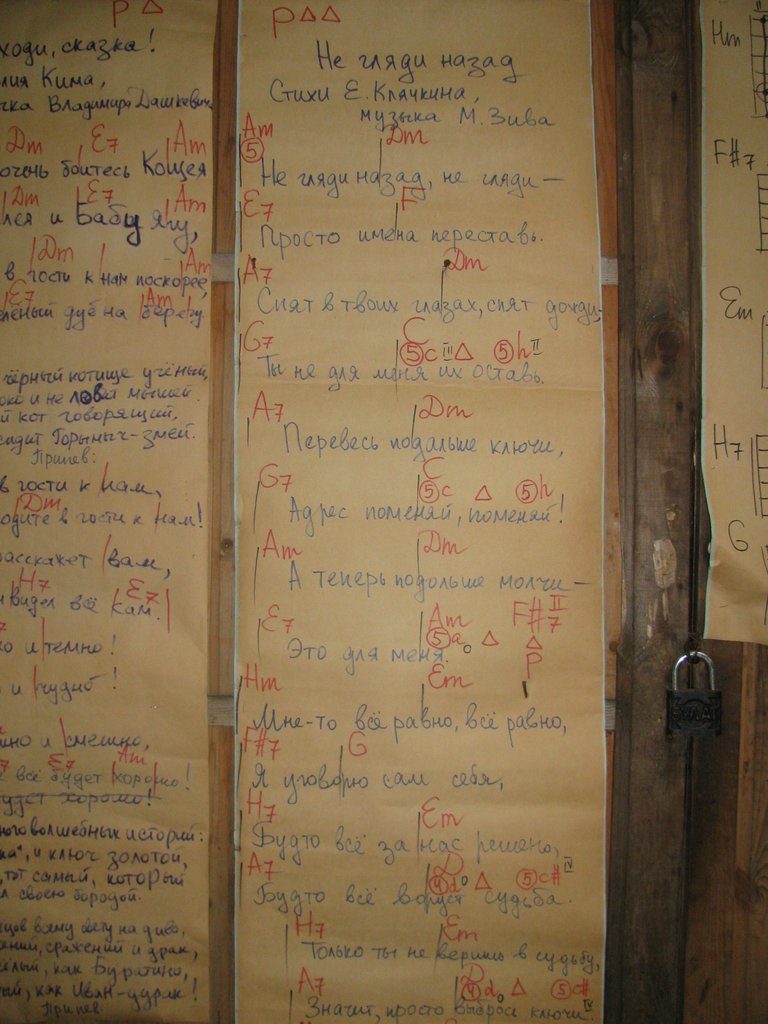 P △
ходи, сказка!
Кима,
Владимира Дашкевич
Dm E7 Am
очень боитесь Кощея
Dm E7 Am
и Бабу Ягу,
Dm Am
в гости к нам поскорее,
E7 Am
дуб на берегу.
чёрный котище учёный,
и не ловил мышей.
кот говорящий,
Горыныч-змей.
Припев:
в гости к нам,
Dm
в гости к нам!
расскажет вам,
H7 E7
видел всё сам.
и темно!
и чудно!
и смешно,
E7 Am
всё будет хорошо!
будет хорошо!
волшебных историй:
и ключ золотой,
тот самый, который
своею бородой.
всему свету на диво,
сражений и драк,
как Буратино,
как Иван-дурак!
Припев
P △ △
Не гляди назад
Стихи Е. Клячкина,
музыка М. Зива
Am Dm
⑤
Не гляди назад, не гляди —
E7 F
Просто имена переставь.
A7 Dm
Спят в твоих глазах, спят дожди,
G7 C
⑤c III △ ⑤h II
Ты не для меня их оставь.
A7 Dm
Перевесь подальше ключи,
G7 C
⑤c △ ⑤h
Адрес поменяй, поменяй!
Am Dm
А теперь подольше молчи —
E7 Am F#7 II
⑤a o △ △
Это для меня. P
Hm Em
Мне-то всё равно, всё равно,
F#7 G
Я уговорю сам себя,
H7 Em
Будто всё за нас решено,
A7 D
④d o △ ⑤c# IV
Будто всё ворует судьба.
H7 Em
Только ты не веришь в судьбу,
A7 D
④d o △ ⑤c# IV
Значит, просто выброси ключи.
Hm
F#7
Em
H7
G